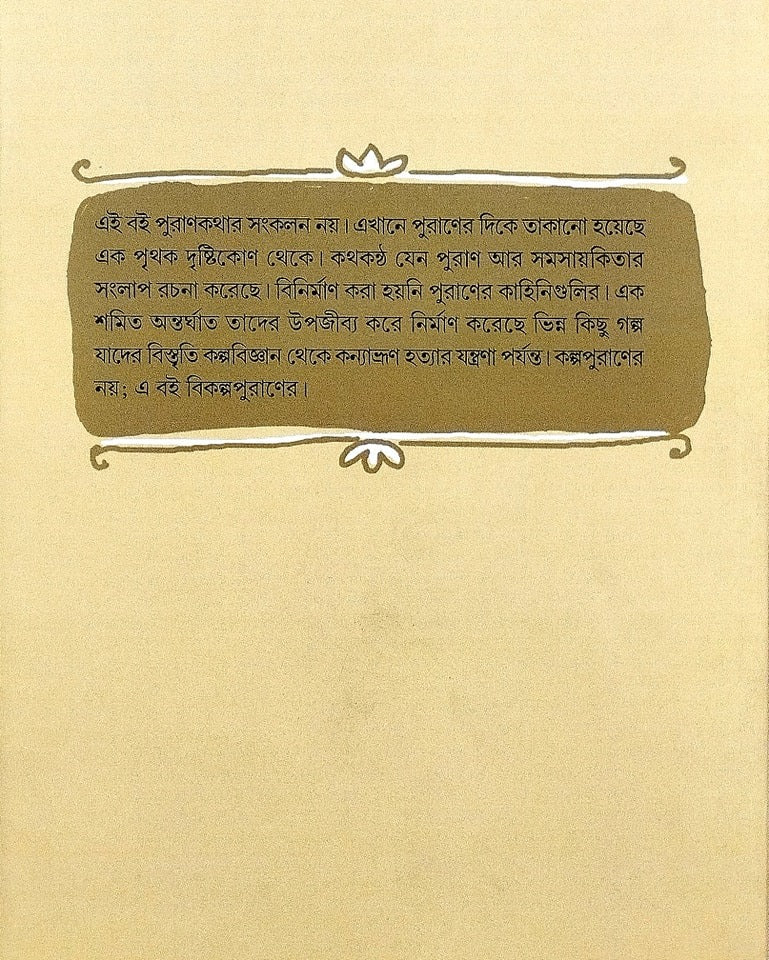 এই বই পুরাণকথার সংকলন নয়। এখানে পুরাণের দিকে তাকানো হয়েছে
এক পৃথক দৃষ্টিকোণ থেকে। কথকন্ঠ যেন পুরাণ আর সমসায়কিতার
সংলাপ রচনা করেছে। বিনির্মাণ করা হয়নি পুরাণের কাহিনিগুলির। এক
শমিত অন্তর্ঘাত তাদের উপজীব্য করে নির্মাণ করেছে ভিন্ন কিছু গল্প
যাদের বিস্তৃতি কল্পবিজ্ঞান থেকে কন্যাভ্রূণ হত্যার যন্ত্রণা পর্যন্ত। কল্পপুরাণের
নয়; এ বই বিকল্পপুরাণের।